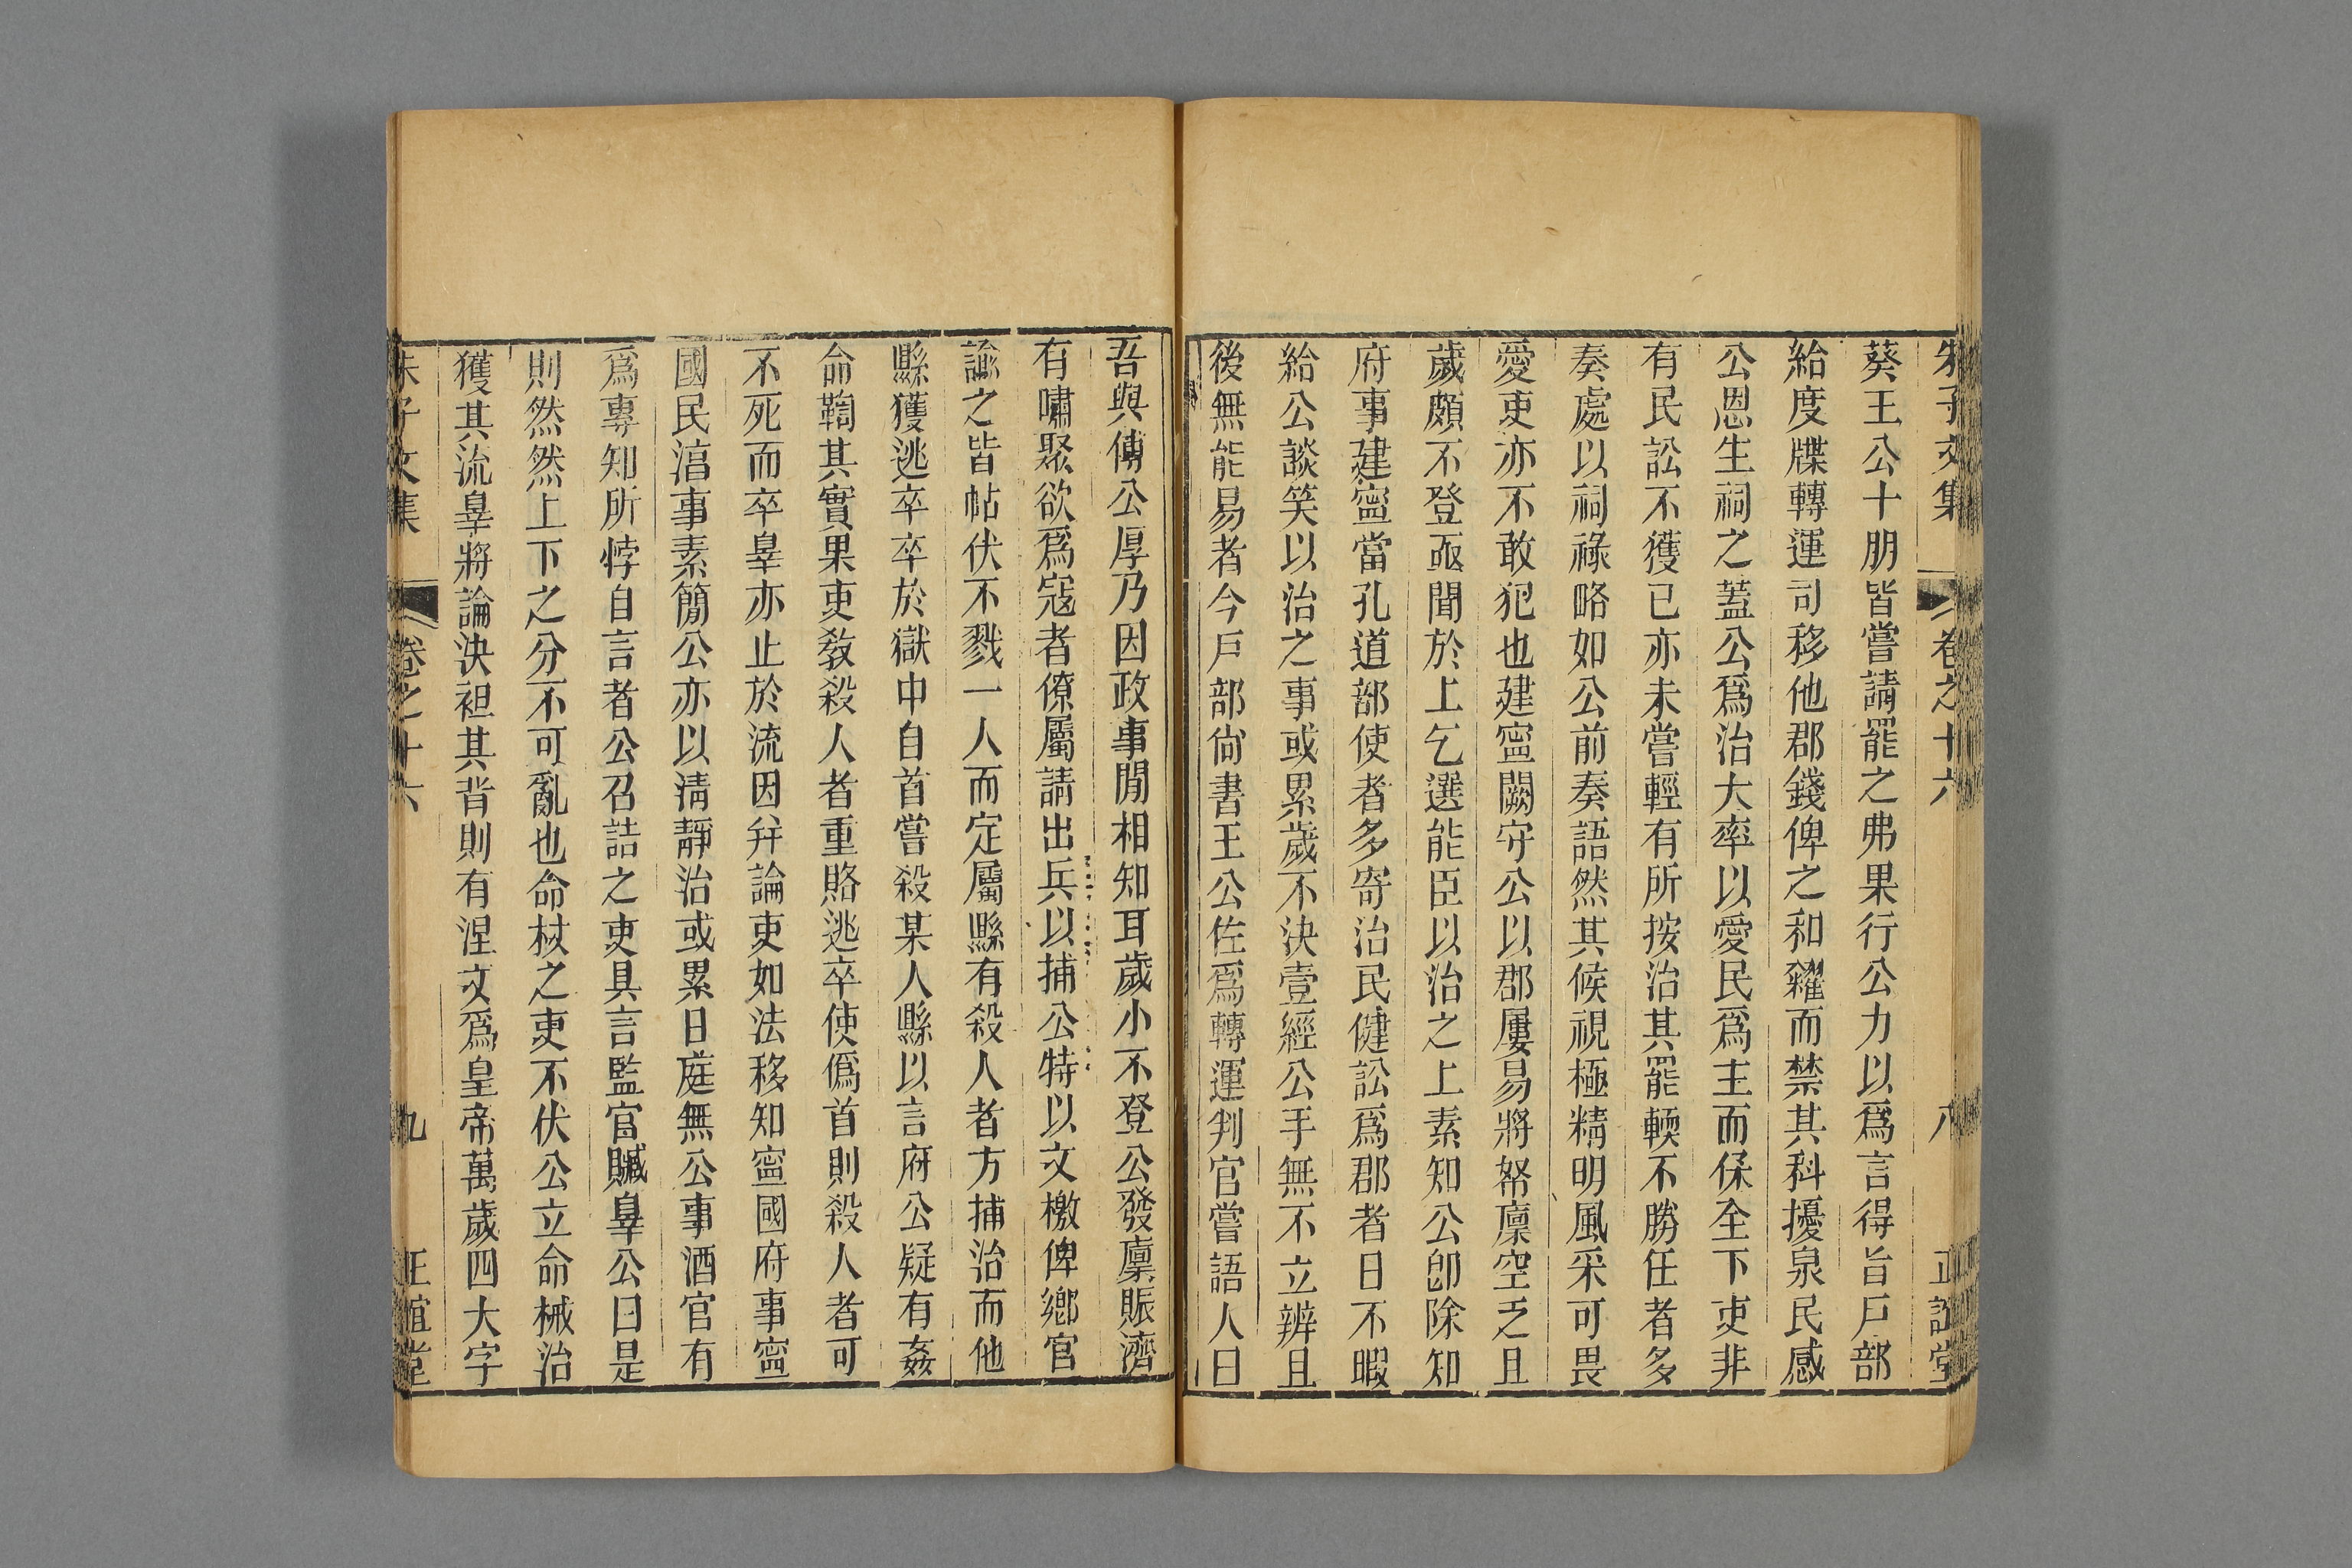 朱子文集 卷之十六 八 正誼堂
葵王公十朋皆嘗請罷之弗果行公力以爲言得旨戸部
給度牒轉運司移他郡錢俾之和糴而禁其科擾泉民感
公恩生祠之蓋公爲治大率以愛民爲主而保全下吏非
有民訟不獲已亦未嘗輕有所按治其罷輭不勝任者多
奏處以祠祿略如公前奏語然其候視極精明風采可畏
愛吏亦不敢犯也建寍闕守公以郡屢易將帑廩空乏且
歲頗不登亟聞於上乞選能臣以治之上素知公卽除知
府事建寍當孔道部使者多寄治民健訟爲郡者日不暇
給公談笑以治之事或累歲不決壹經公手無不立辨且
後無能易者今戸部尙書王公佐爲轉運判官嘗語人曰
吾與傅公厚乃因政事閒相知耳歲小不登公發廩賑濟
有嘯聚欲爲寇者僚屬請出兵以捕公特以文檄俾鄉官
諭之皆帖伏不戮一人而定屬縣有殺人者方捕治而他
縣獲逃卒卒於獄中自首嘗殺某人縣以言府公疑有姦
命鞫其實果吏敎殺人者重賂逃卒使僞首則殺人者可
不死而卒辠亦止於流因幷論吏如法移知寍國府事寍
國民湻事素簡公亦以淸靜治或累日庭無公事酒官有
爲專知所悖自言者公召詰之吏具言監官贓辠公曰是
則然然上下之分不可亂也命杖之吏不伏公立命械治
獲其流辠將論決袒其背則有涅文爲皇帝萬歲四大字
朱子文集 卷之十六 九 正誼堂